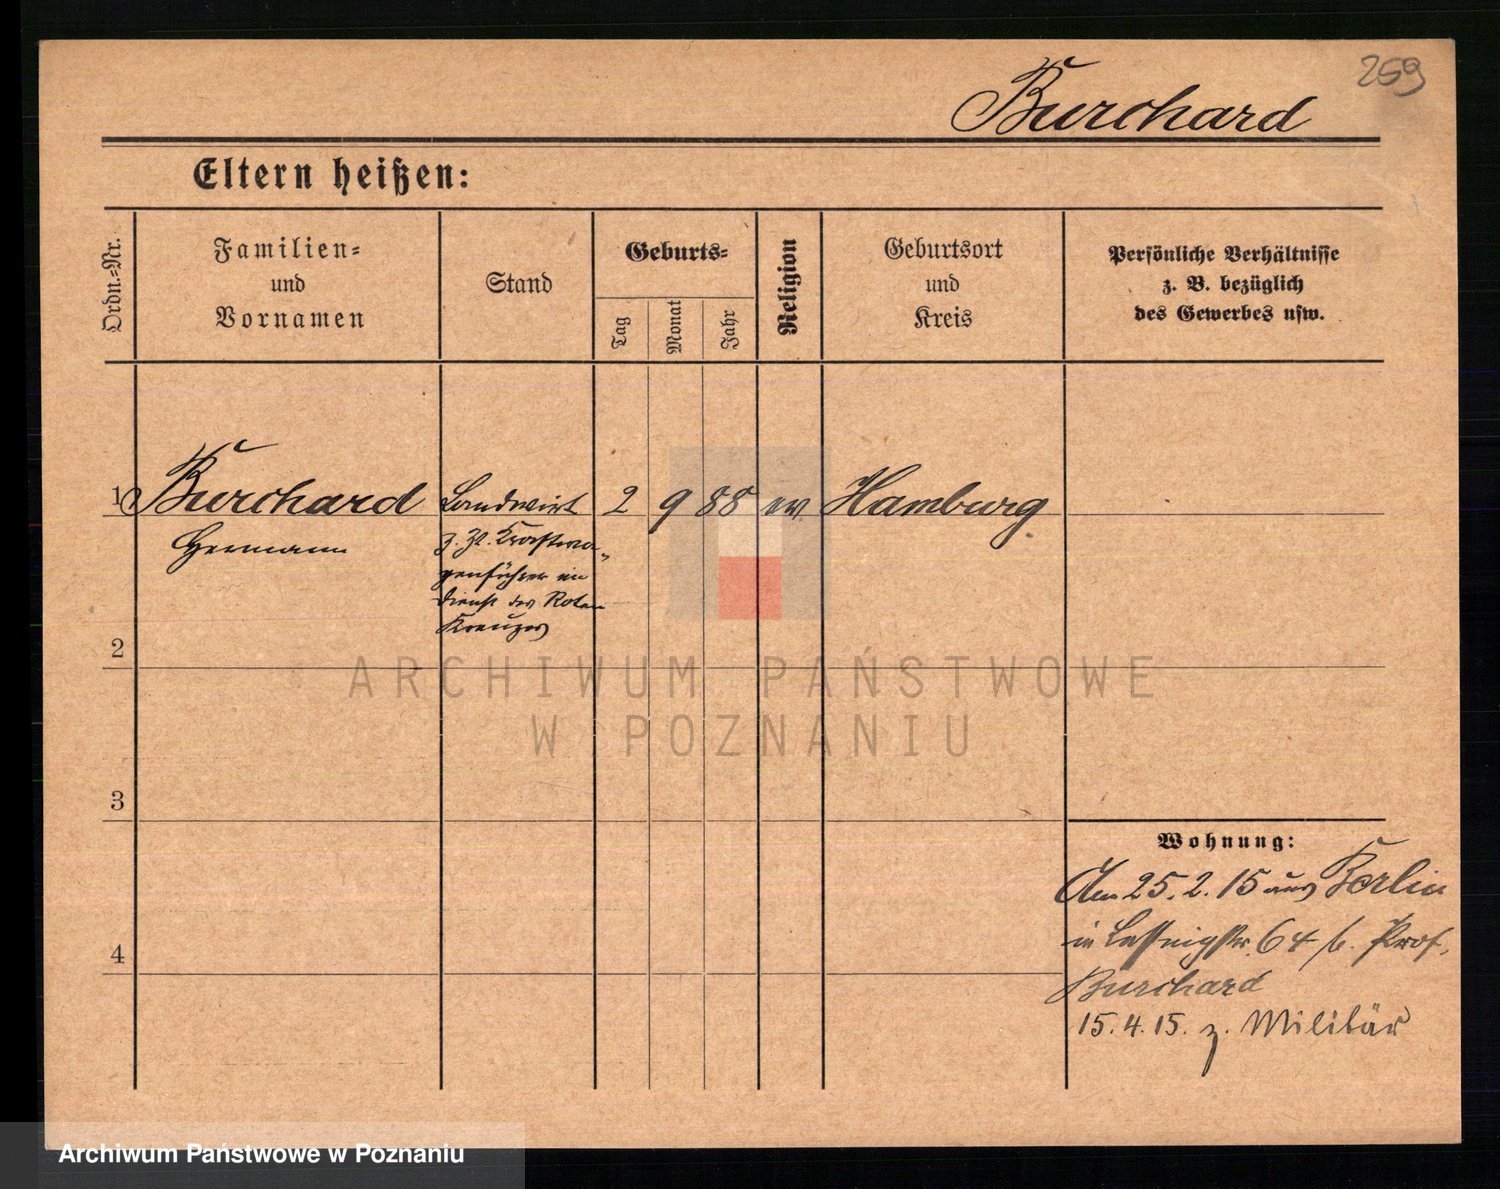 259
Burchard
Eltern heißen:
Ordn.-Nr.
Familien-
und
Vornamen
Stand
Geburts-
Tag
Monat
Jahr
Religion
Geburtsort
und
Kreis
Persönliche Verhältnisse
z. B. bezüglich
des Gewerbes usw.
1 Burchard Landwirt 2 9 88 ev. Hamburg
Hermann z. Zt. Kraftwa-
genführer im
Dienst des Roten
Kreuzes
2
ARCHIWUM PAŃSTWOWE
W POZNANIU
3
4
Wohnung:
Am 25.2.15 aus Berlin
in Lessingstr. 64 b. Prof.
Burchard
15.4.15. z. Militär
Archiwum Państwowe w Poznaniu